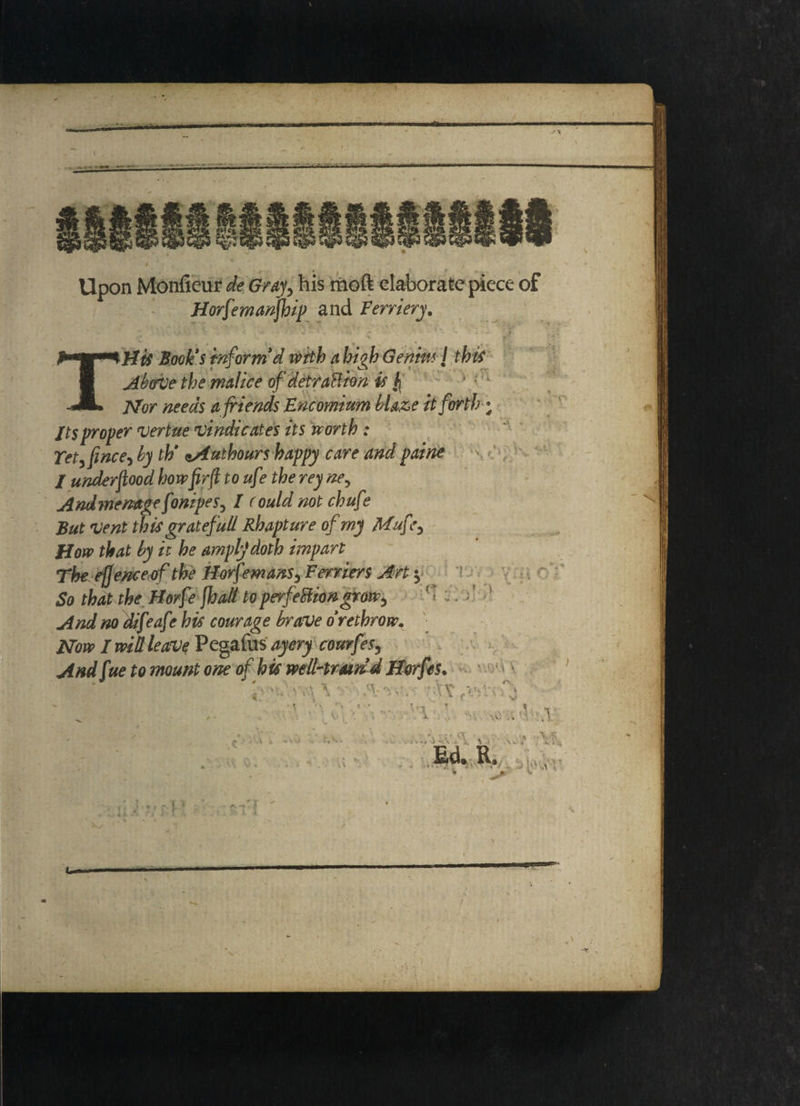 Upon Monſieur de Gray, his moſt elaborate piece of
Horſemanſhip and Ferriery.
THis Book's inform'd with a high Genius! this
Above the malice of detraction is;
Nor needs a friends Encomium blaze it forth;
Its proper vertue vindicates its worth:
Yet, ſince, by th' Authours happy care and paine
I underſtood how firſt to uſe the reyne,
And menage ſonipes, I could not chuſe
But vent this gratefull Rhapture of my Muſe,
How that by it he amply doth impart
The eſſence of the Horſemans, Ferriers Art;
So that the Horſe ſhall to perfection grow,
And no diſeaſe his courage brave o'rethrow.
Now I will leave Pegaſus ayery courſes,
And ſue to mount one of his well-train'd Horſes.
Ed. R.